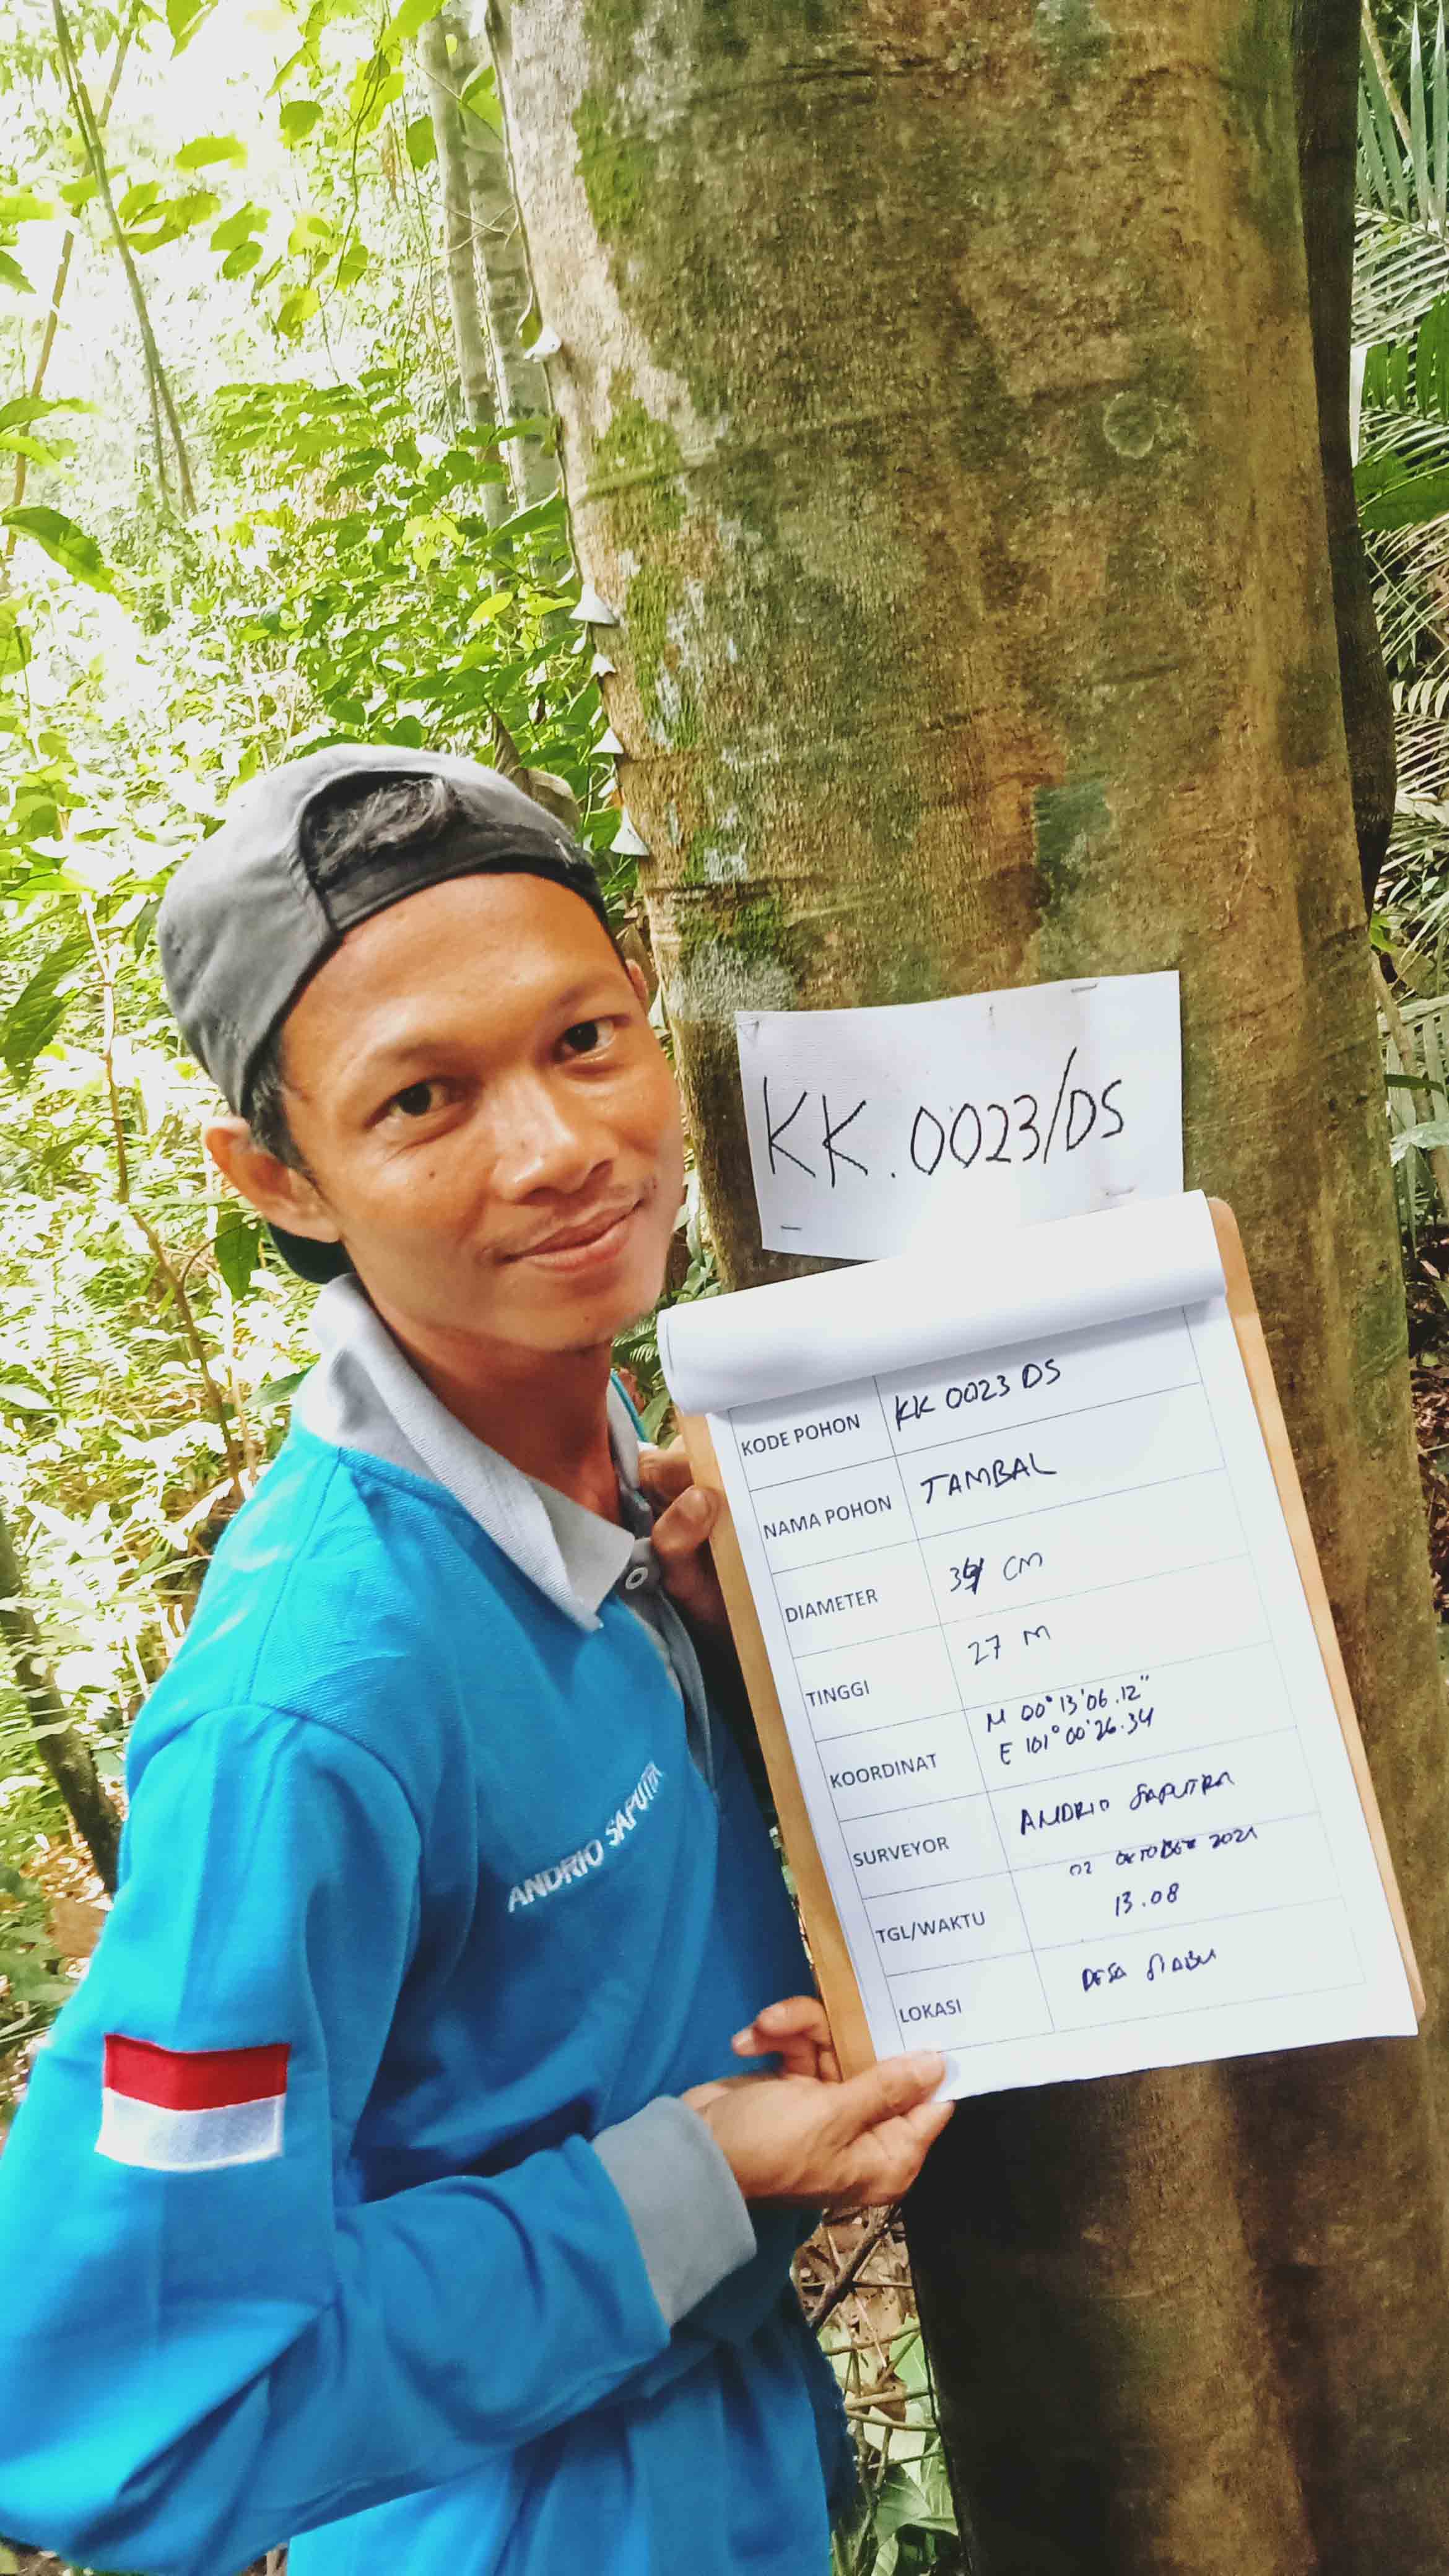 KK.0023/DS
KODE POHON KK 0023 DS
NAMA POHON TAMBAL
DIAMETER CM
TINGGI 27 M
KOORDINAT N 00° 13' 06.12"
E 101° 00' 26.34
SURVEYOR ANDRIO SAPUTRA
TGL/WAKTU 02 OKTOBER 2021
13.08
LOKASI DESA SIABU
ANDRIO SAPUTRA